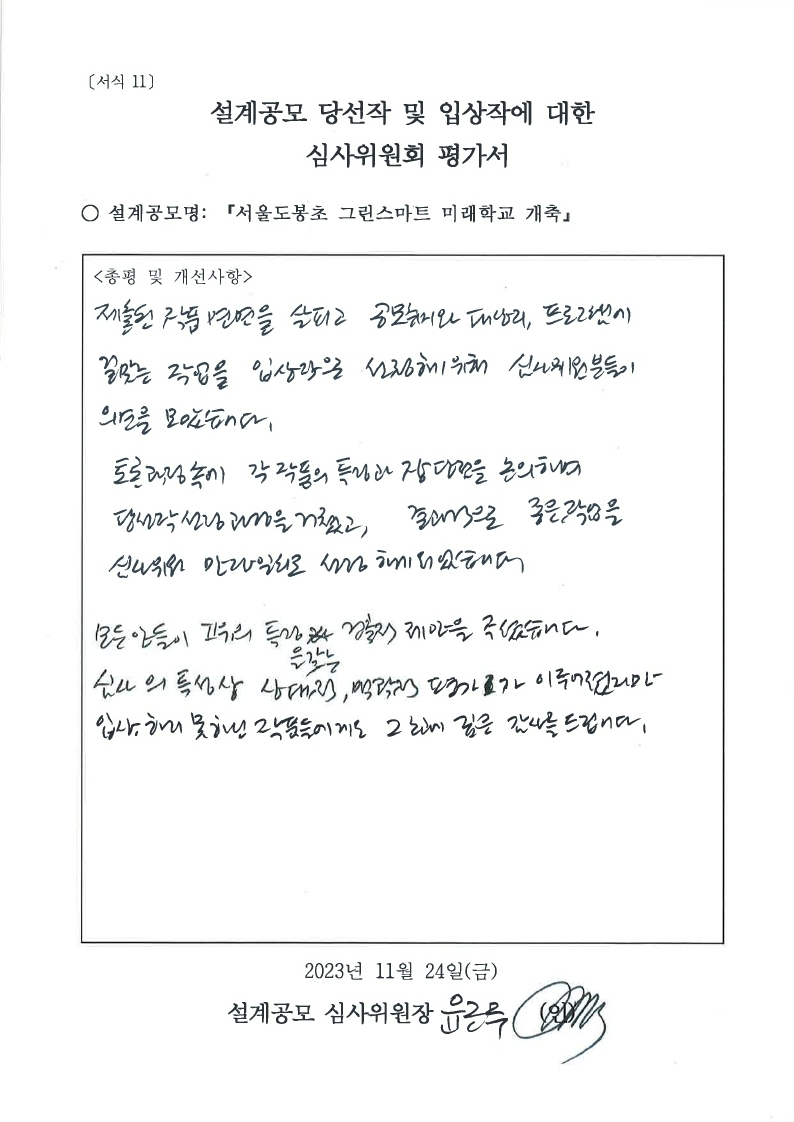 〔서식 11〕
설계공모 당선작 및 입상작에 대한
심사위원회 평가서
○ 설계공모명: 『서울도봉초 그린스마트 미래학교 개축』
<총평 및 개선사항>
제출된 작품 면면을 살피고 공모취지와 대상지, 프로그램에
걸맞는 작업을 입상작으로 선정하기위해 심사위원분들이
의견을 모았습니다.
토론과정속에 각 작품의 특징과 장단점을 논의하며
당선작선정과정을 거쳤고, 결과적으로 좋은작업을
심사위원 만장일치로 선정하게되었습니다
모든안들이 고유의 특징을갖는 제안을 주셨습니다.
심사의 특성상 상대적, 평가가 이루어졌지만
입상하지 못하신 작품들에게도 그 깊은 감사를드립니다.
2023년 11월 24일(금)
설계공모 심사위원장 윤근주 (인)